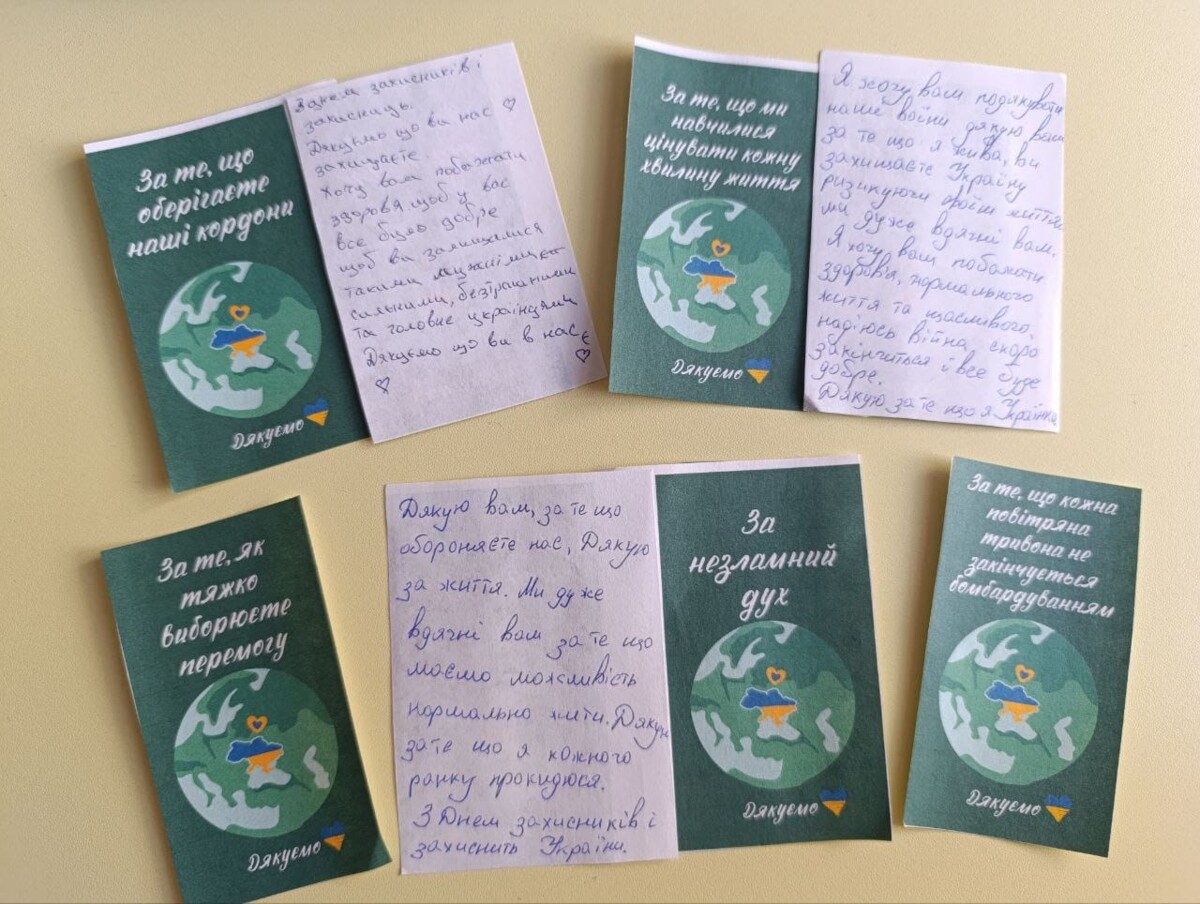 За те, що
оберігаєте
наші кордони
Дякуємо
З днем захисників і
захисниць.
Дякуємо що ви нас
захищаєте.
Хочу вам побажати
здоровя щоб у вас
все було добре
щоб ви залишалися
такими мужніми
сильними, безтрашними
та головне українцями
Дякуємо що ви в нас є
За те, що ми
навчилися
цінувати кожну
хвилину життя
Дякуємо
Я хочу вам подякувати
наші воїни дякую вам
за те що я жива, ви
захищаєте Україну
ризикуючи своїм життям
ми дуже вдячні вам.
Я хочу вам побажати
здоров'я, нормального
життя та щасливого,
надіюсь війна скоро
закінчиться і все буде
добре.
Дякую за те що я Українка
За те, як
тяжко
виборюєте
перемогу
Дякуємо
Дякую вам, за те що
обороняєте нас, Дякую
за життя. Ми дуже
вдячні вам за те що
маємо можливість
нормально жити. Дякую
за те що я кожного
ранку прокидюся.
З Днем захисників і
захиснить України.
За
незламний
дух
Дякуємо
За те, що кожна
повітряна
тривона не
закінчується
бомбардуванням
Дякуємо